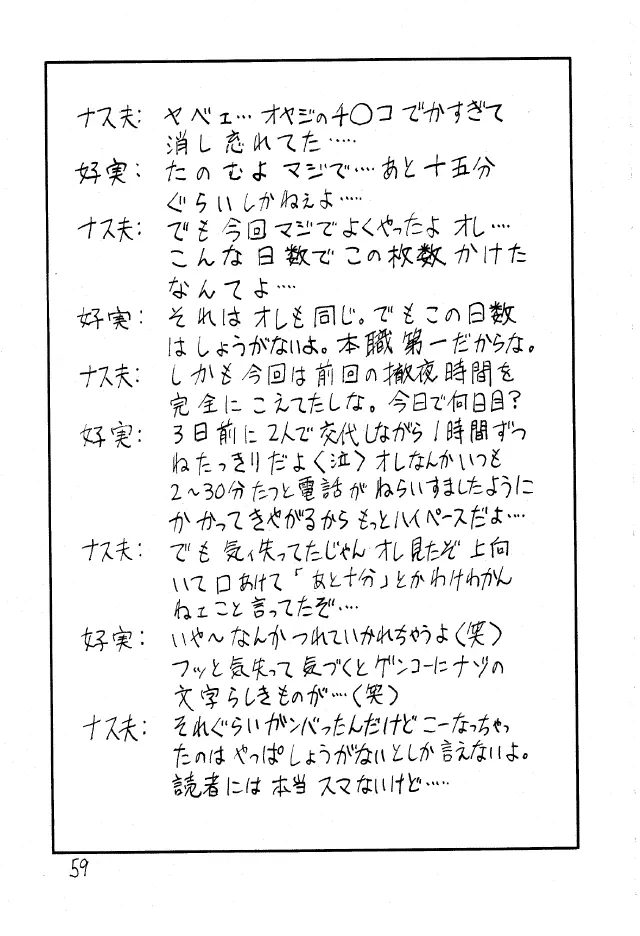 ナス夫: ヤベェ… オヤジのチ〇コでかすぎて
消し忘れてた……
好実: たのむよ マジで…あと十五分
ぐらいしかねぇよ……
ナス夫: でも今回マジでよくやったよ オレ…
こんな日数でこの枚数かけた
なんてよ…
好実: それはオレも同じ。でもこの日数
はしょうがないよ。本職第一だからな。
ナス夫: しかも今回は前回の徹夜時間を
完全にこえてたしな。今日で何日目?
好実: 3日前に2人で交代しながら1時間ずつ
ねたっきりだよ(泣)オレなんかいつも
2~30分たつと電話がねらいすましたように
かかってきやがるからもっとハイペースだよ…
ナス夫: でも気ィ失ってたじゃん オレ見たぞ 上向
いて口あけて「あと十分」とかわけわかん
ねェこと言ってたぞ…
好実: いや~なんかつれていかれちゃうよ(笑)
フッと気失って気づくとゲンコーにナゾの
文字らしきものが…(笑)
ナス夫: それぐらいガンバったんだけどこーなっちゃっ
たのはやっぱしょうがないとしか言えないよ。
読者には本当スマないけど……
59